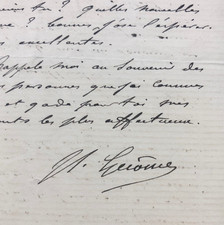 tu ? quelles nouvelles
? bonnes j'ose l'espérer
excellentes.
Rappele moi au souvenir des
personnes que j'ai connues
et garde pour toi mes
les plus affectueux.
Gerome